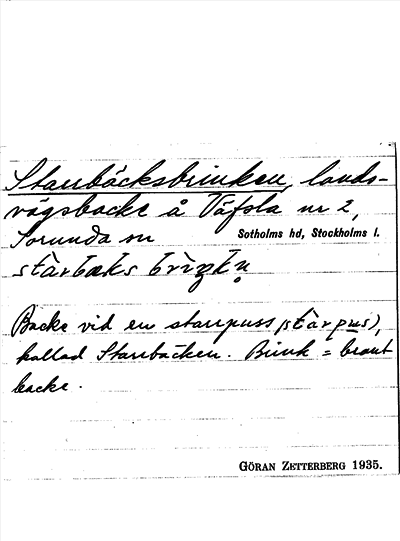 Starrbäcksbrinken, lands-
vägsbacke å Väfsla nr 2,
Sorunda sn Sotholms hd, Stockholms l.
stàrbæks brìŋkn̥
Backe vid en starrpuss (stàrpus),
kallad Starrbäcken. Brink = brant
backe.
GÖRAN ZETTERBERG 1935.